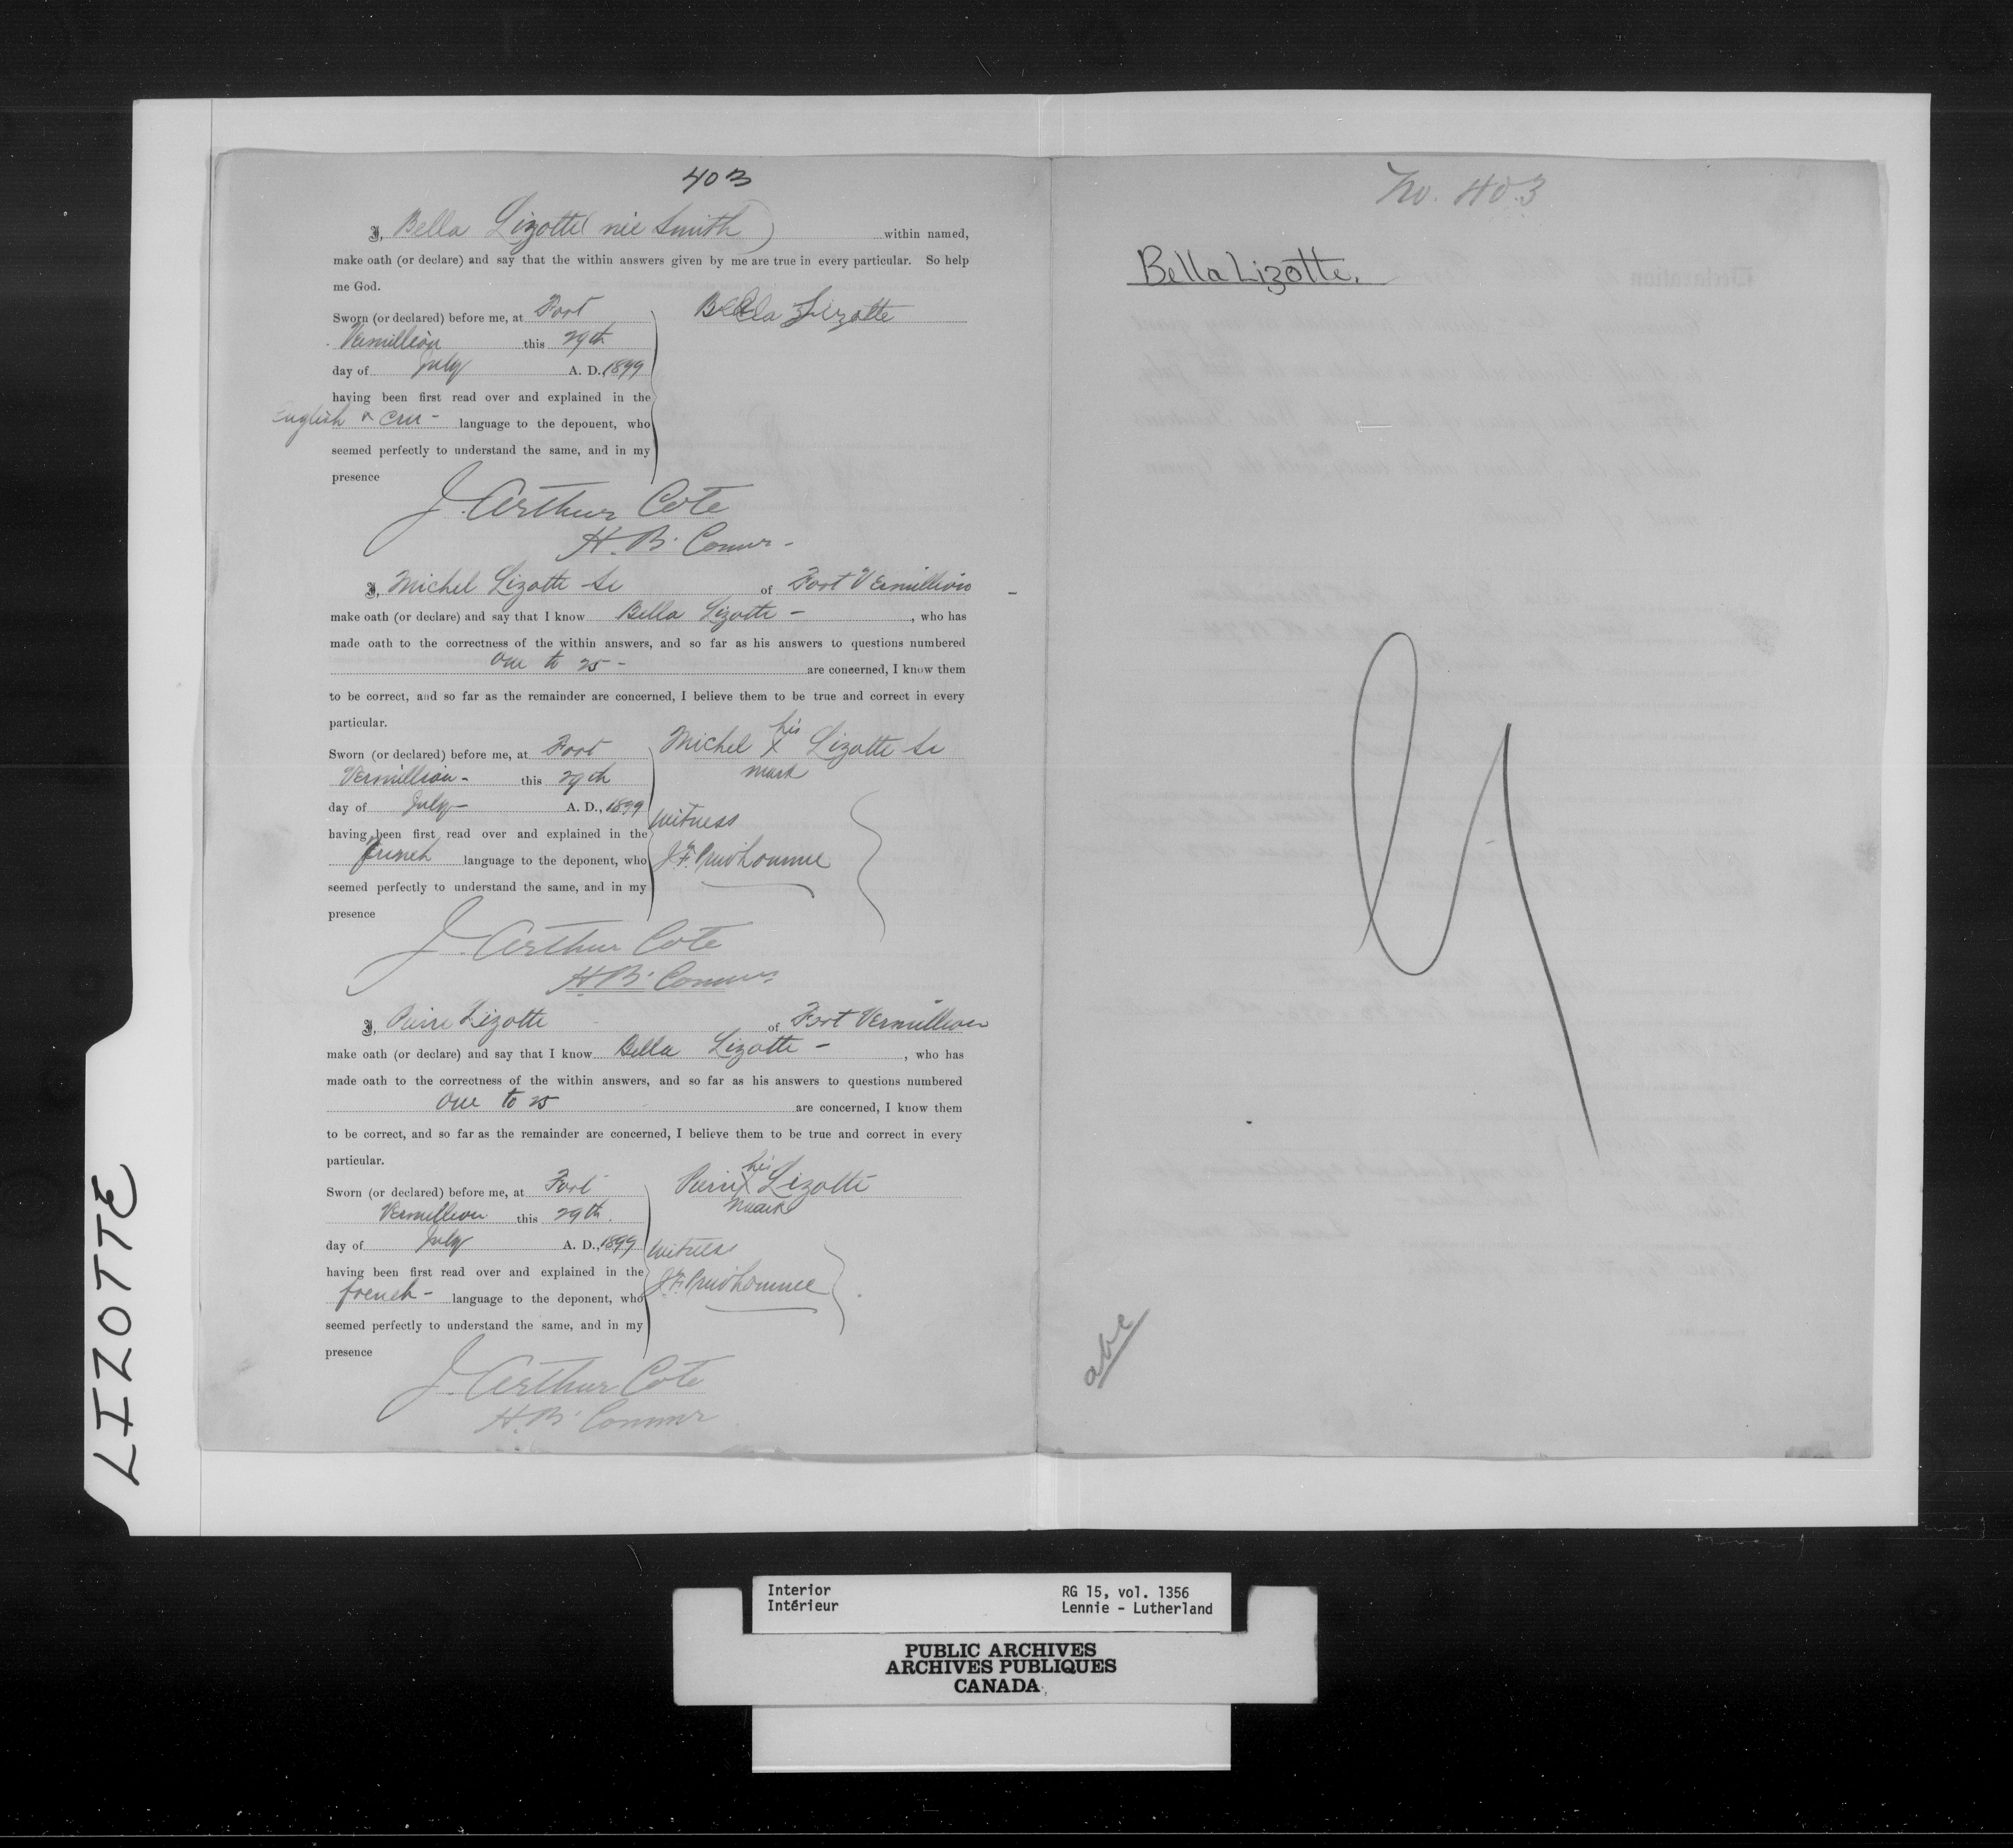 403
I, Bella Lizotte (nie Smith) within named,
make oath (or declare) and say that the within answers given by me are true in every particular. So help
me God.
Sworn (or declared) before me, at Fort
Vermillion this 29th
day of July A. D., 1899
having been first read over and explained in the
English & Cree - language to the deponent, who
seemed perfectly to understand the same, and in my
presence
Bella Lizotte
J. Arthur Cote
H. B. Commr -
I, Michel Lizotte Sr of Fort Vermillion -
make oath (or declare) and say that I know Bella Lizotte - , who has
made oath to the correctness of the within answers, and so far as his answers to questions numbered
One to 25 - are concerned, I know them
to be correct, and so far as the remainder are concerned, I believe them to be true and correct in every
particular.
Sworn (or declared) before me, at Fort
Vermillion - this 29th
day of July - A. D., 1899
having been first read over and explained in the
french language to the deponent, who
seemed perfectly to understand the same, and in my
presence
his
Michel X Lizotte Sr
mark
Witness
J. F. Prudhomme
J. Arthur Cote
H. B. Commr
I, Pierre Lizotte of Fort Vermillion
make oath (or declare) and say that I know Bella Lizotte - , who has
made oath to the correctness of the within answers, and so far as his answers to questions numbered
One to 25 are concerned, I know them
to be correct, and so far as the remainder are concerned, I believe them to be true and correct in every
particular.
Sworn (or declared) before me, at Fort
Vermillion this 29th.
day of July A. D., 1899
having been first read over and explained in the
french - language to the deponent, who
seemed perfectly to understand the same, and in my
presence
his
Pierre X Lizotte
mark
Witness
J. F. Prudhomme
J. Arthur Cote
H. B. Commr
No. 403
Bella Lizotte.
LIZOTTE
Interior
Intérieur
RG 15, vol. 1356
Lennie - Lutherland
PUBLIC ARCHIVES
ARCHIVES PUBLIQUES
CANADA